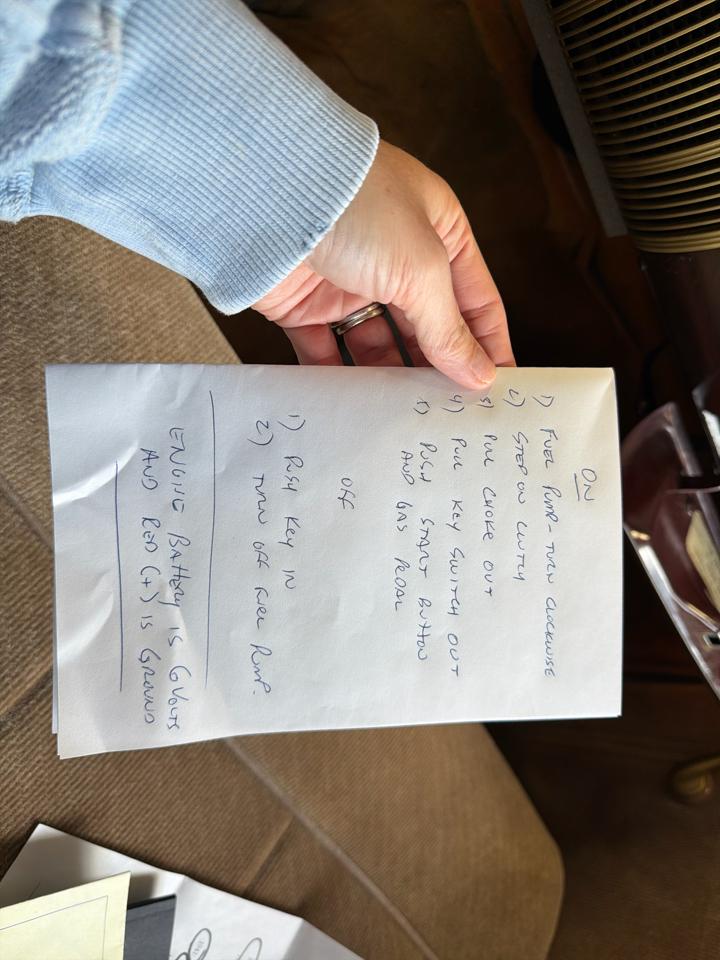 ON
1) FUEL PUMP - TURN CLOCKWISE
2) STEP ON CLUTCH
3) PULL CHOKE OUT
4) PULL KEY SWITCH OUT
5) PUSH START BUTTON
AND GAS PEDAL
OFF
1) PUSH KEY IN
2) TURN OFF FUEL PUMP.
ENGINE BATTERY IS 6 VOLTS
AND RED (+) IS GROUND